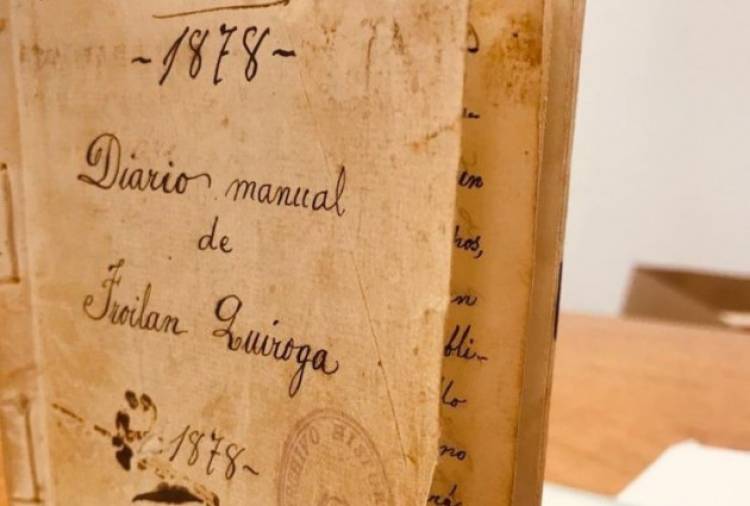 -1878-
Diario manual
de
Froilan Quiroga
1878-
en
hos,
n
bli-
lo
no